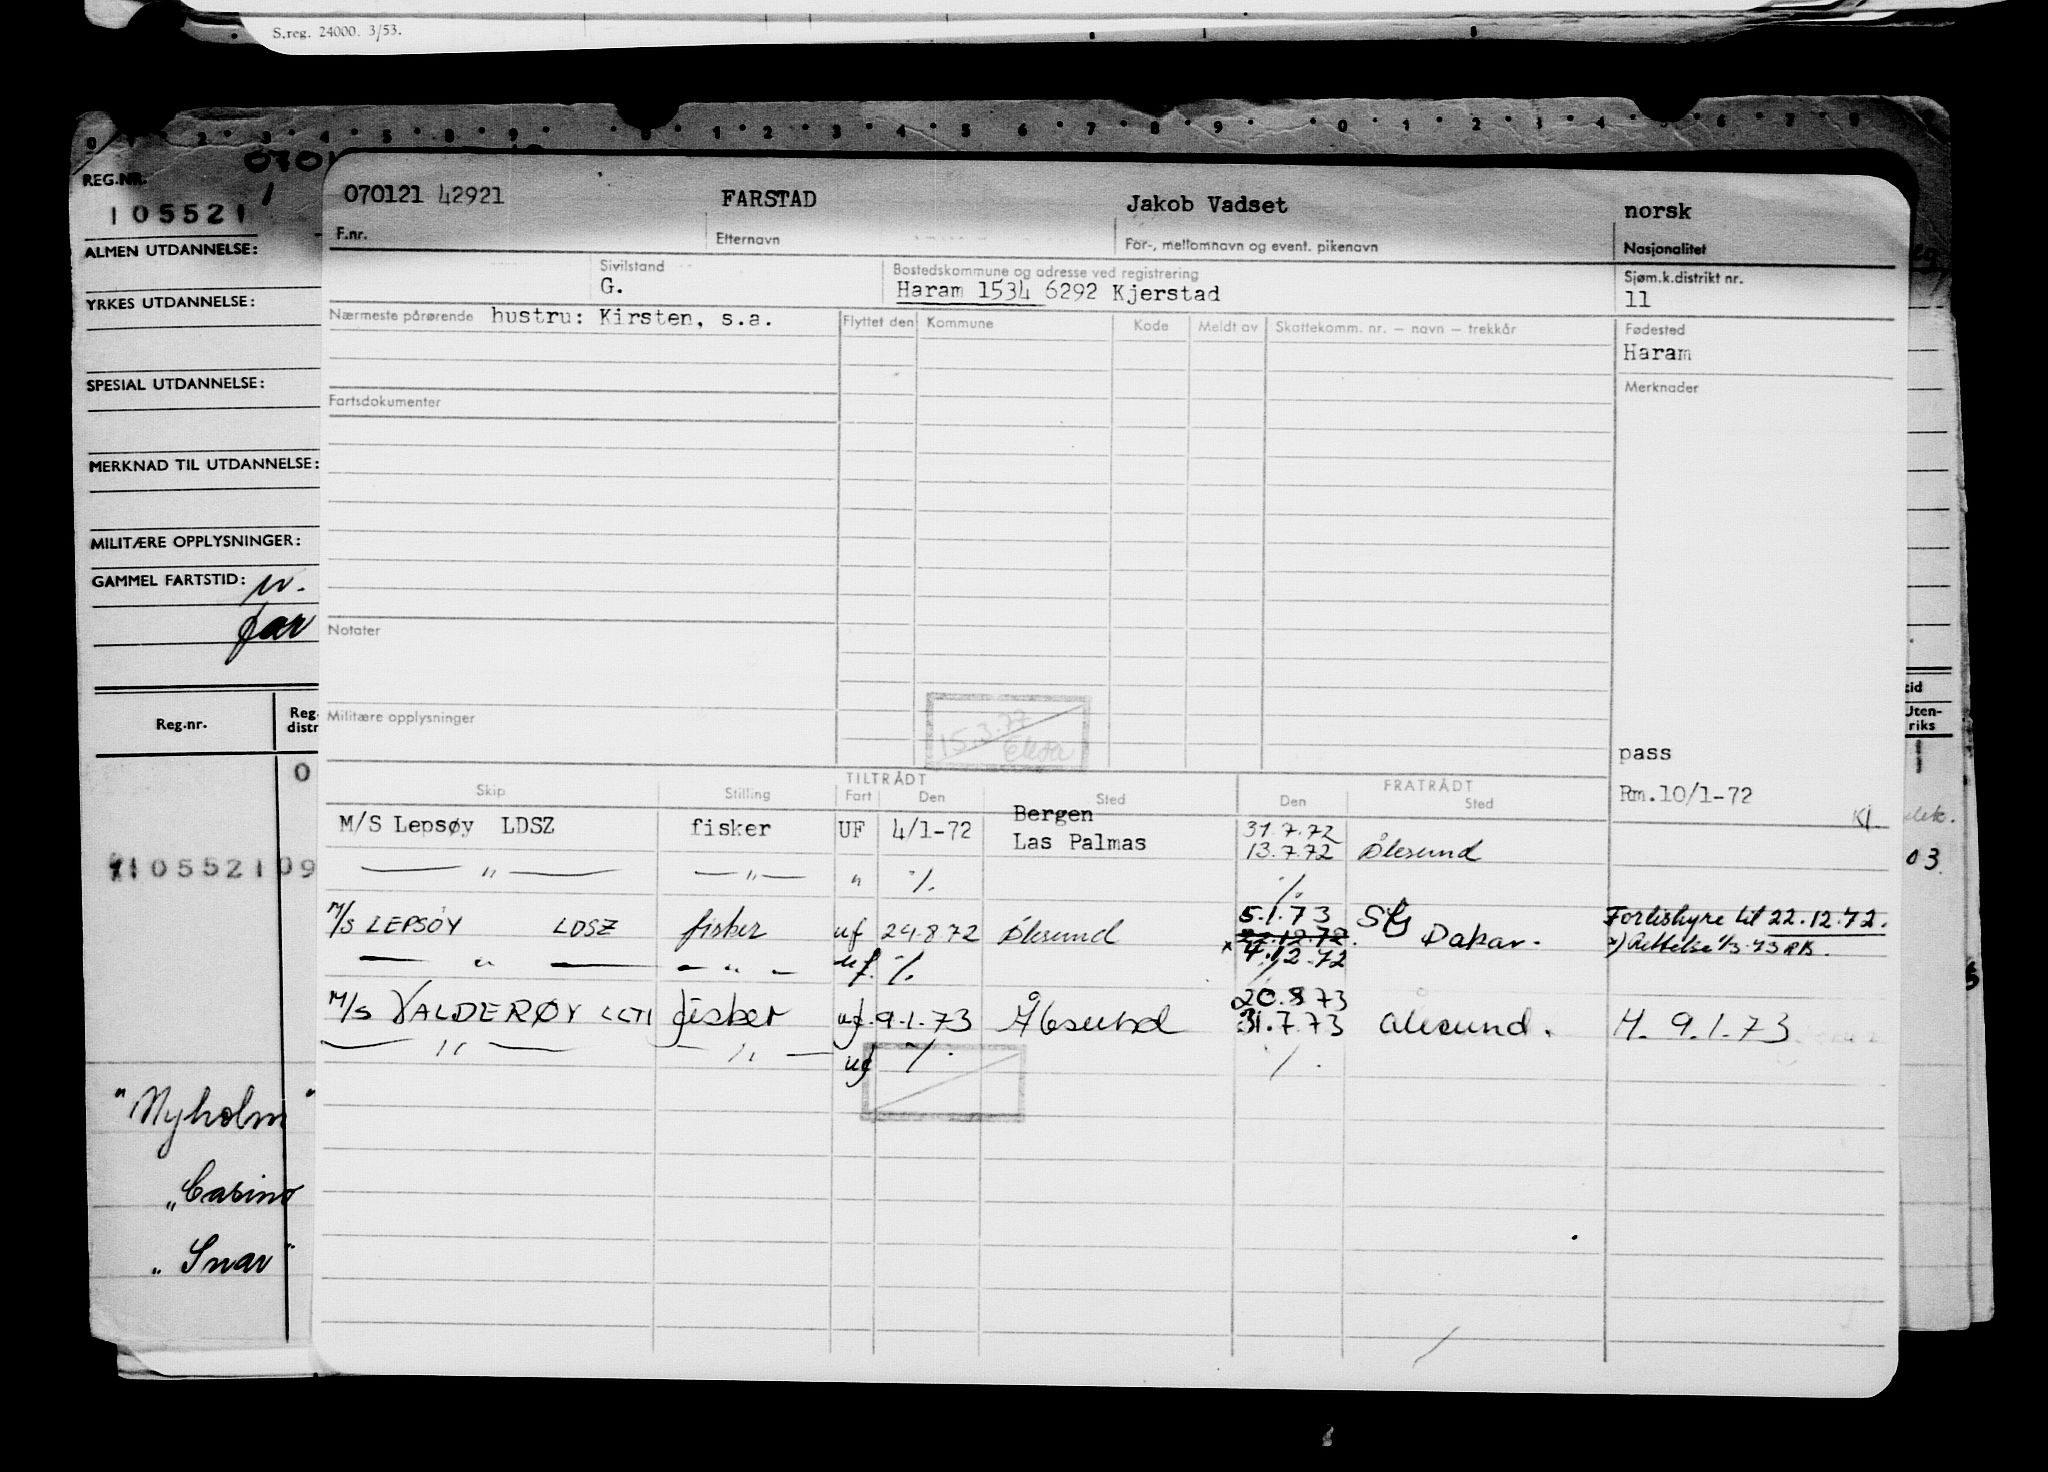 S.reg. 24000. 3/53.
0 1 2 3 4 5 8 9 0 1 2 3 4 5 6 7 8 9 0 1 2 3 4 5 6 7 8 9
REG.NR.
105521
ALMEN UTDANNELSE:
YRKES UTDANNELSE:
SPESIAL UTDANNELSE:
MERKNAD TIL UTDANNELSE:
MILITÆRE OPPLYSNINGER:
GAMMEL FARTSTID:
far
Reg.nr.
Reg.
distr
0
1105521 09
"Nyholm"
"Casino
"Snar"
070121 42921 FARSTAD Jakob Vadset norsk
F.nr. Etternavn For-, mellomnavn og event. pikenavn Nasjonalitet
Sivilstand Bostedskommune og adresse ved registrering Sjøm.k.distrikt nr.
G. Haram 1534 6292 Kjerstad 11
Nærmeste pårørende hustru: Kirsten, s.a. Flyttet den Kommune Kode Meldt av Skattekomm. nr. — navn — trekkår Fødested
Haram
Merknader
Fartsdokumenter
Notater
Militære opplysninger
15.3.77
pass
Rm.10/1-72
Kj.
TILTRÅDT FRATRÅDT
Skip Stilling Fart Den Sted Den Sted
M/S Lepsøy LDSZ fisker UF 4/1-72 Bergen
Las Palmas 31.7.72
13.7.72 Ålesund
— " — — " — " ./. ./.
M/S LEPSÖY LDSZ fisker uf 24.8 72 Ålesund 5.1.73
22.12.72.
x 7.12.72 Dakar. Forlishyre til 22.12.72.
x) Rettelse 1/3.73 RB.
— " — — " — uf. ./. ./.
M/S VALDERØY LCTI fisker uf. 9.1.73 Ålesund 20.8.73
31.7.73 Ålesund. H. 9.1.73
— " — — " — uf ./. ./.
tid
Uten-
riks
03.